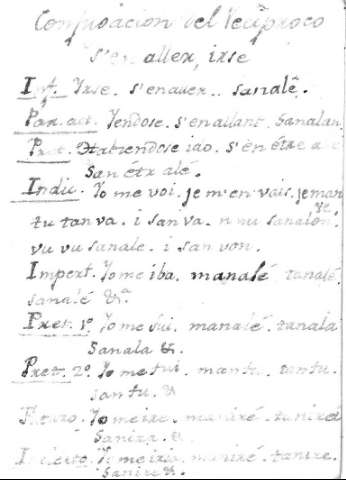 Conjugacion del Reciproco
s'en aller, irse
Inf. Yrse. s'en aller.. sanalé.
Par. act. Yendose. s'en allant. Sanalan
Pret. Habiendose ido. s'en étre alé
San étr alé.
Indic. Yo me voi. je m'en vais. jeman
ve.
tu tanva. i sanva. n nu sanalon.
vu vu sanale. i san von.
Imperf. Yo me iba. manalé tanalé.
sanalé &a
Pret. 1º. Yo me fui. manalé. tanala
Sanala &.
Pret. 2º. Yo me fui. mantu. tantu.
santu. &
Futuro. Yo me iré. maniré. taniré
Sanira. &.
Yo me iria. maniré. tanire.
Sanire &.